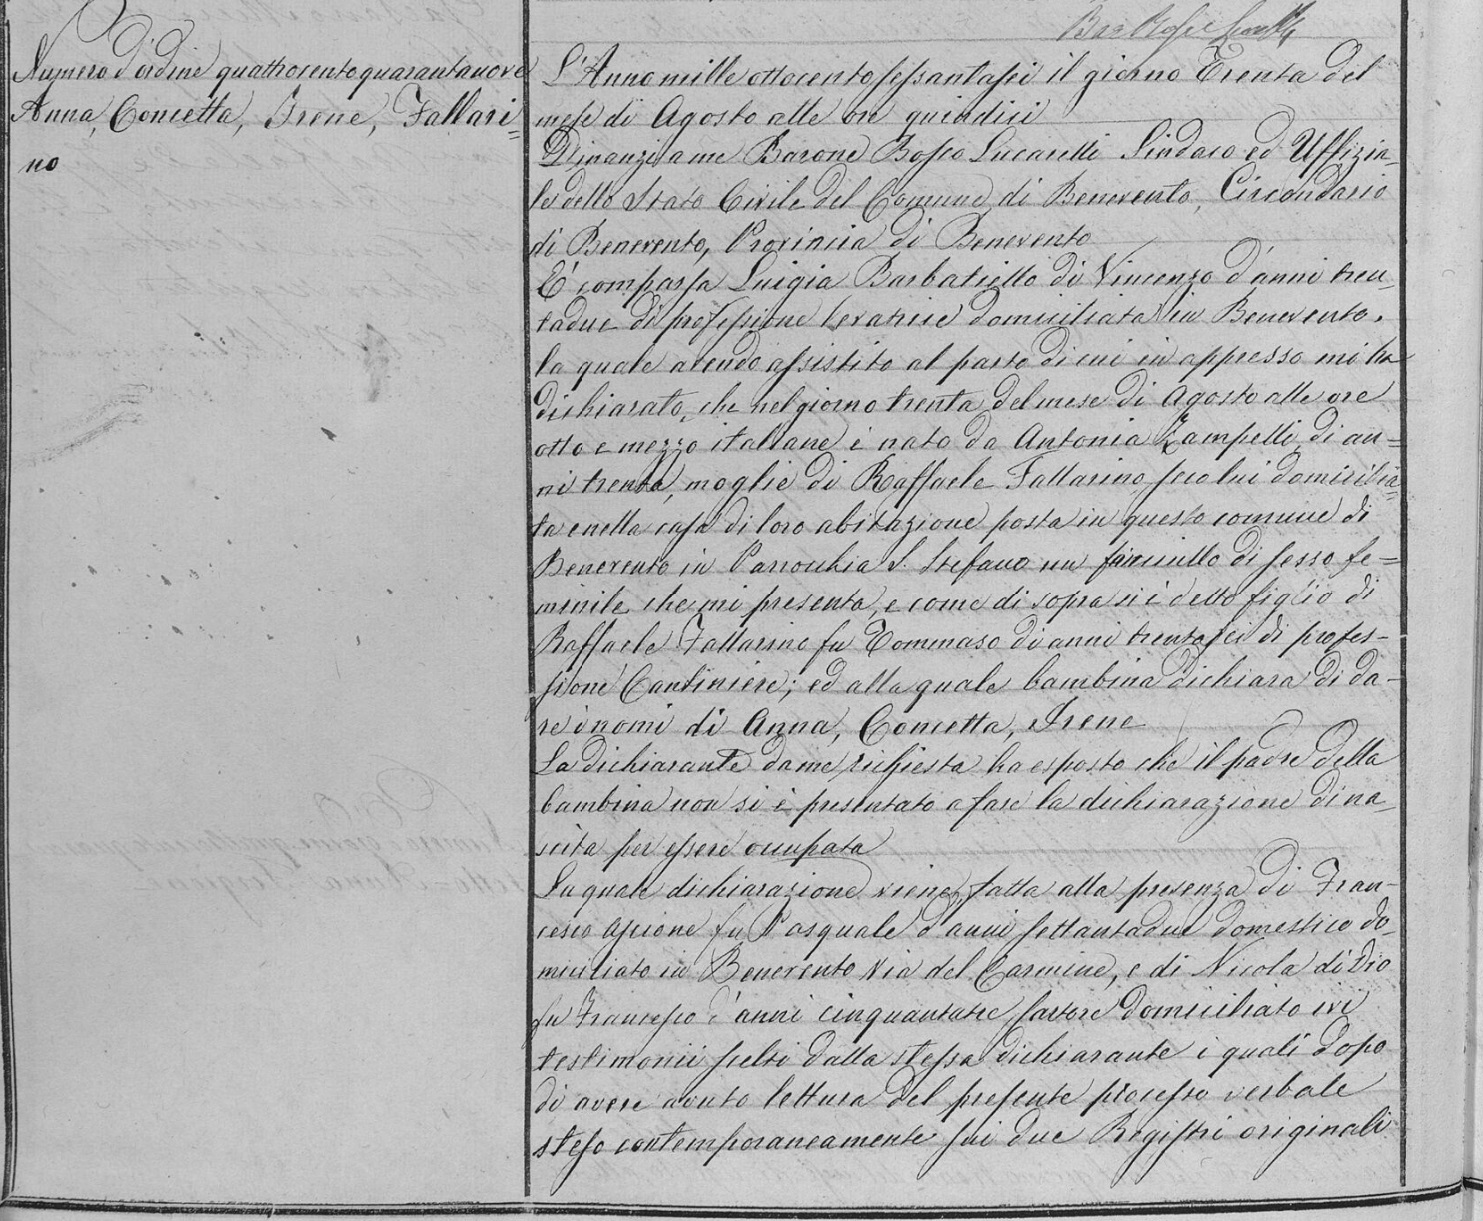 Numero d'ordine quattrocentoquarantanove
Anna, Concetta, Irene, Fallari=
no
L'Anno mille ottocento sessantasei il giorno Trenta del
mese di Agosto alle ore quindici
Dinanzi a me Barone Bosco Lucarelli Sindaco ed Uffizia-
le dello Stato Civile del Comune di Benevento, Circondario
di Benevento, Provincia di Benevento
E' comparsa Luigia Barbatiello di Vincenzo d'anni tren-
tadue di professione levatrice domiciliata in Benevento.
la quale avendo assistito al parto di cui in appresso mi ha
dichiarato, che nel giorno trenta del mese di Agosto alle ore
otto e mezzo italiane è nato da Antonia Zampelli, di an=
ni trenta, moglie di Raffaele Fallarino seco lui domicilia=
ta e nella casa di loro abitazione posta in questo comune di
Benevento in Parrochia S. Stefano un fanciullo di sesso fe=
minile che mi presenta, e come di sopra si è detto figlio di
Raffaele Fallarino fu Tommaso di anni trentasei di profes-
sione Cantiniere; ed alla quale bambina dichiara di da-
re i nomi di Anna, Concetta, Irene
La dichiarante da me richiesta ha esposto che il padre della
bambina non si è presentato a fare la dichiarazione di na-
scita per essere occupata
La quale dichiarazione viene fatta alla presenza di Fran-
cesco Ascione fu Pasquale d'anni settantadue domestico do-
miciliato in Benevento Via del Carmine, e di Nicola di Dio
fu Francesco d'anni cinquantatre sartore domiciliato ivi
testimonii scelti dalla stessa dichiarante i quali dopo
di avere avuto lettura del presente processo verbale
steso contemporaneamente sui due Registri originali